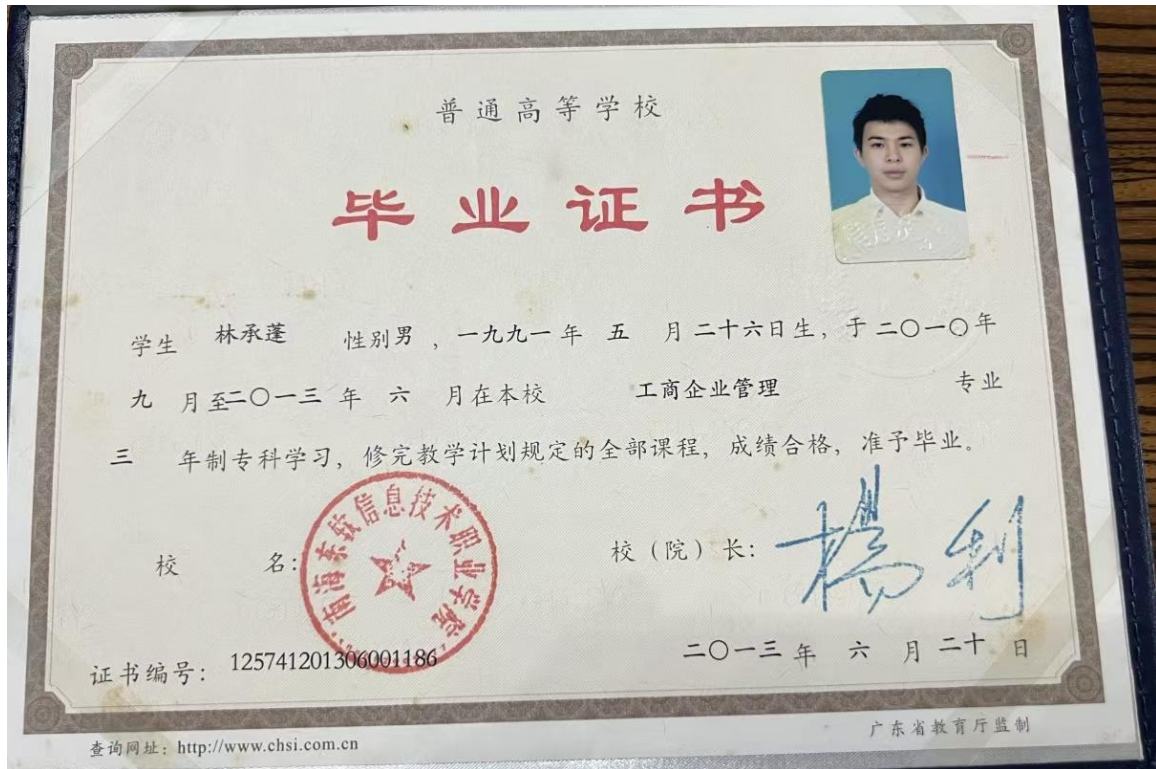 普通高等学校
毕业证书
学生 林承蓬 性别男，一九九一年 五 月二十六日生，于二〇一〇年
九 月至二〇一三 年 六 月在本校 工商企业管理 专业
三 年制专科学习，修完教学计划规定的全部课程，成绩合格，准予毕业。
校 名：
南海东软信息技术职业学院
校（院）长：
楊利
证书编号： 125741201306001186
二〇一三 年 六 月 二十 日
查询网址：http://www.chsi.com.cn
广东省教育厅监制